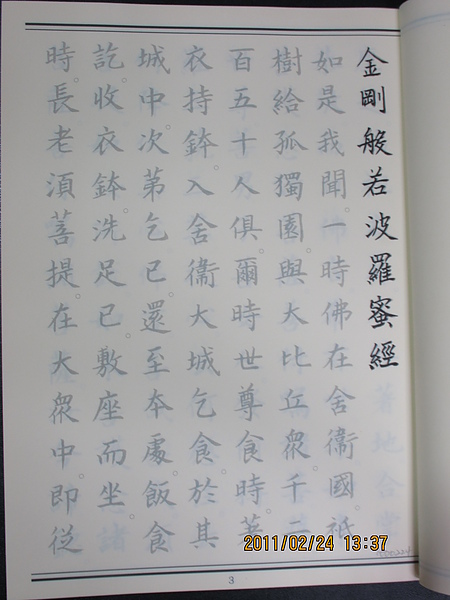 金剛般若波羅蜜經
如是我聞。一時佛在舍衞國祇
樹給孤獨園。與大比丘衆。千二
百五十人俱爾時世尊食時著
衣持鉢。入舍衞大城乞食。於其
城中。次苐乞已。還至夲處。飯食
訖。收衣鉢。洗足已。敷座而坐。
時。長老湏菩提。在大衆中。即從
3
2011/02/24 13:37